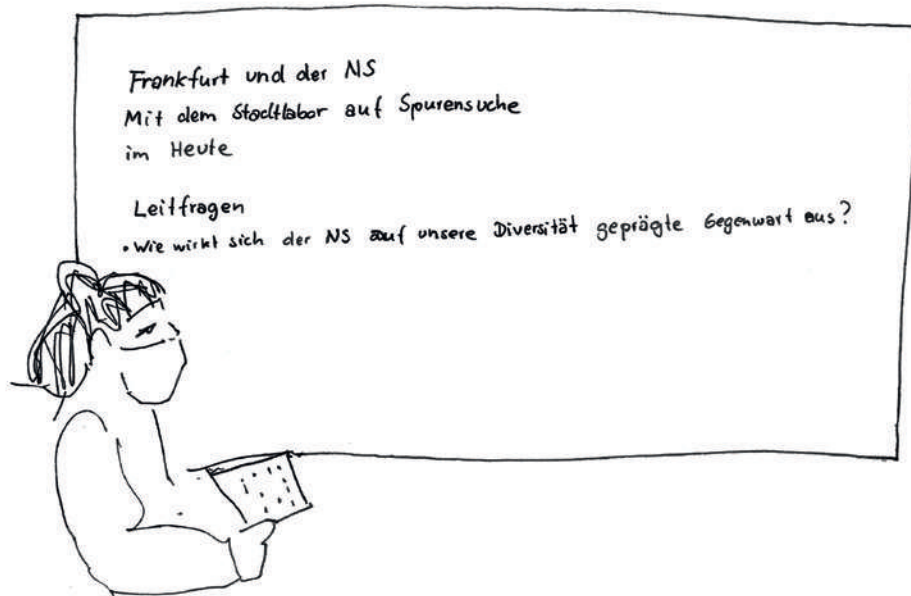 Frankfurt und der NS
Mit dem Stadtlabor auf Spurensuche
im Heute
Leitfragen
• Wie wirkt sich der NS auf unsere Diversität geprägte Gegenwart aus?